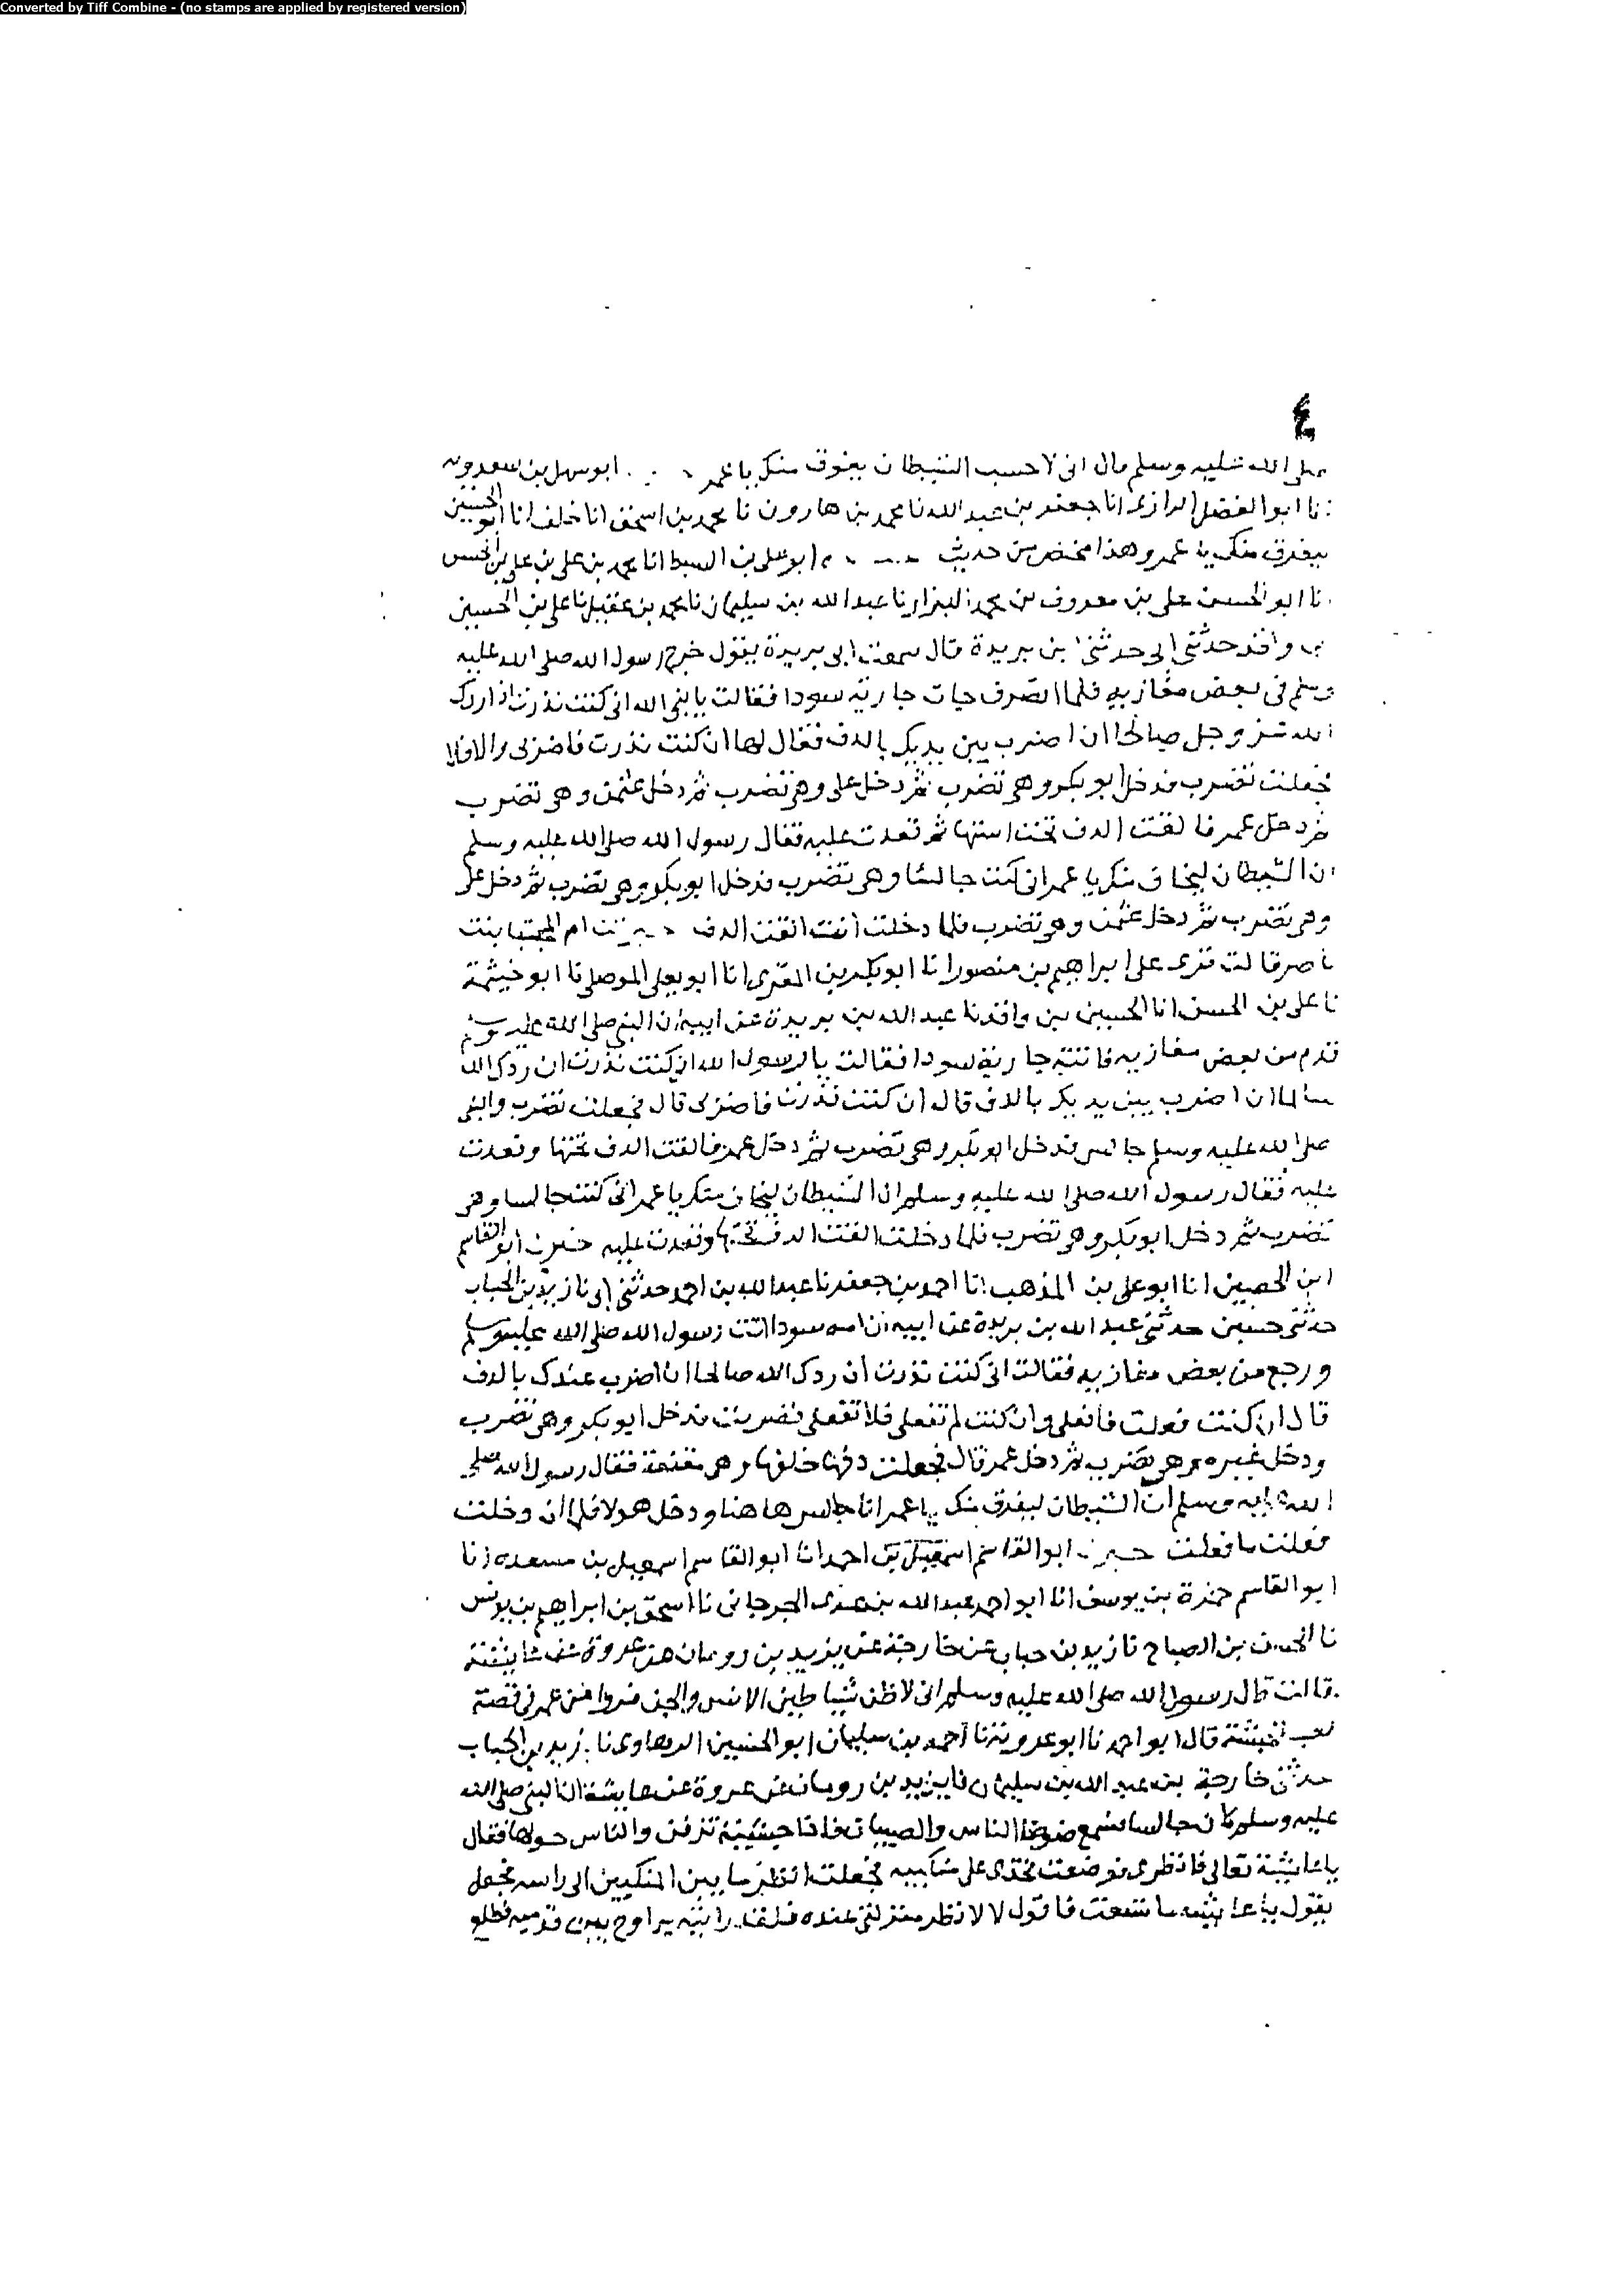 Converted by Tiff Combine - (no stamps are applied by registered version)
٤
صلى الله عليه وسلم قال انى لاحسب الشيطان يفرق منك يا عمر ابو سهل بن سعدويه
انا ابو الفضل الرازى انا جعفر بن عبد الله نا محمد بن هارون نا محمد بن اسحق انا خلف انا ابو الحسين
ليفرق منك يا عمر وهذا مختصر من حديث ابو على بن السبط انا محمد بن على بن على بن الحسن
نا ابو الحسن على بن معروف بن محمد البزار نا عبد الله بن سليمان نا محمد بن عقيل نا على بن الحسين
بن واقد حدثنى ابى حدثنى ابن بريدة قال سمعت ابى بريدة يقول خرج رسول الله صلى الله عليه
وسلم فى بعض مغازيه فلما انصرف جات جارية سودا فقالت يا نبى الله انى كنت نذرت اذا ردك
الله عز وجل صالحا ان اضرب بين يديك بالدف فقال لها ان كنت نذرت فاضربى والا فلا
فجعلت تضرب فدخل ابو بكر وهى تضرب ثم دخل على وهى تضرب ثم دخل عثمن وهى تضرب
ثم دخل عمر فالقت الدف تحت استها ثم قعدت عليه فقال رسول الله صلى الله عليه وسلم
ان الشيطان ليخاف منك يا عمر انى كنت جالسا وهى تضرب فدخل ابو بكر وهى تضرب ثم دخل على
وهى تضرب ثم دخل عثمن وهى تضرب فلما دخلت انت القت الدف ام المجتبا بنت
ناصر قالت قرى على ابراهيم بن منصور انا ابو بكر بن المقرى انا ابو يعلى الموصلى نا ابو خيثمة
نا على بن الحسن انا الحسين بن واقد نا عبد الله بن بريدة عن ابيه ان النبى صلى الله عليه وسلم
قدم من بعض مغازيه فاتته جارية سودا فقالت يا رسول الله انى كنت نذرت ان ردك الله
سالما ان اضرب بين يديك بالدف قال ان كنت نذرت فاضربى قال فجعلت تضرب والنبى
صلى الله عليه وسلم جالس فدخل ابو بكر وهى تضرب ثم دخل عمر فالقت الدف تحتها وقعدت
عليه فقال رسول الله صلى الله عليه وسلم ان الشيطان ليخاف منك يا عمر انى كنت جالسا وهى
تضرب ثم دخل ابو بكر وهى تضرب فلما دخلت القت الدف تحتها وقعدت عليه ابو القاسم
ابن الحصين انا ابو على بن المذهب انا احمد بن جعفر نا عبد الله بن احمد حدثنى ابى نا زيد بن الحباب
حدثنى حسين حدثنى عبد الله بن بريدة عن ابيه ان امه سودا اتت رسول الله صلى الله عليه وسلم
ورجع من بعض مغازيه فقالت انى كنت نذرت ان ردك الله صالحا ان اضرب عندك بالدف
قال ان كنت فعلت فافعلى وان كنت لم تفعلى فلا تفعلى فضربت فدخل ابو بكر وهى تضرب
ودخل غيره وهى تضرب ثم دخل عمر قال فجعلت دفها خلفها وهى مقنعة فقال رسول الله صلى
الله عليه وسلم ان الشيطان ليفرق منك يا عمر انا جالس هاهنا ودخل هولا فلما ان دخلت
فعلت ما فعلت ابو القاسم اسمعيل بن احمد انا ابو القاسم اسمعيل بن مسعده انا
ابو القاسم حمزة بن يوسف انا ابو احمد عبد الله بن عدى الجرجانى نا اسحق بن ابراهيم بن يونس
نا الحسن بن الصباح نا زيد بن حباب عن خارجة عن يزيد بن رومان عن عروة عن عايشة
قالت قال رسول الله صلى الله عليه وسلم انى لاظن شياطين الانس والجن فروا من عمر فى قصة
لعب الحبشة قال ابو احمد نا ابو عروبة نا احمد بن سليمان ابو الحسين الرهاوى نا زيد بن الحباب
حدثنى خارجة بن عبد الله بن سليمان نا يزيد بن رومان عن عروة عن عايشة ان النبى صلى الله
عليه وسلم كان جالسا فسمع ضوضا الناس والصبيان فاذا حبشية تزفن والناس حولها فقال
يا عايشة تعالى فانظرى فوضعت خدى على منكبيه فجعلت انظر ما بين المنكبين الى راسه فجعل
يقول يا عايشه ما شبعت فاقول لا لانظر منزلتى عنده فلقد رايته يراوح بين قدميه فطلع